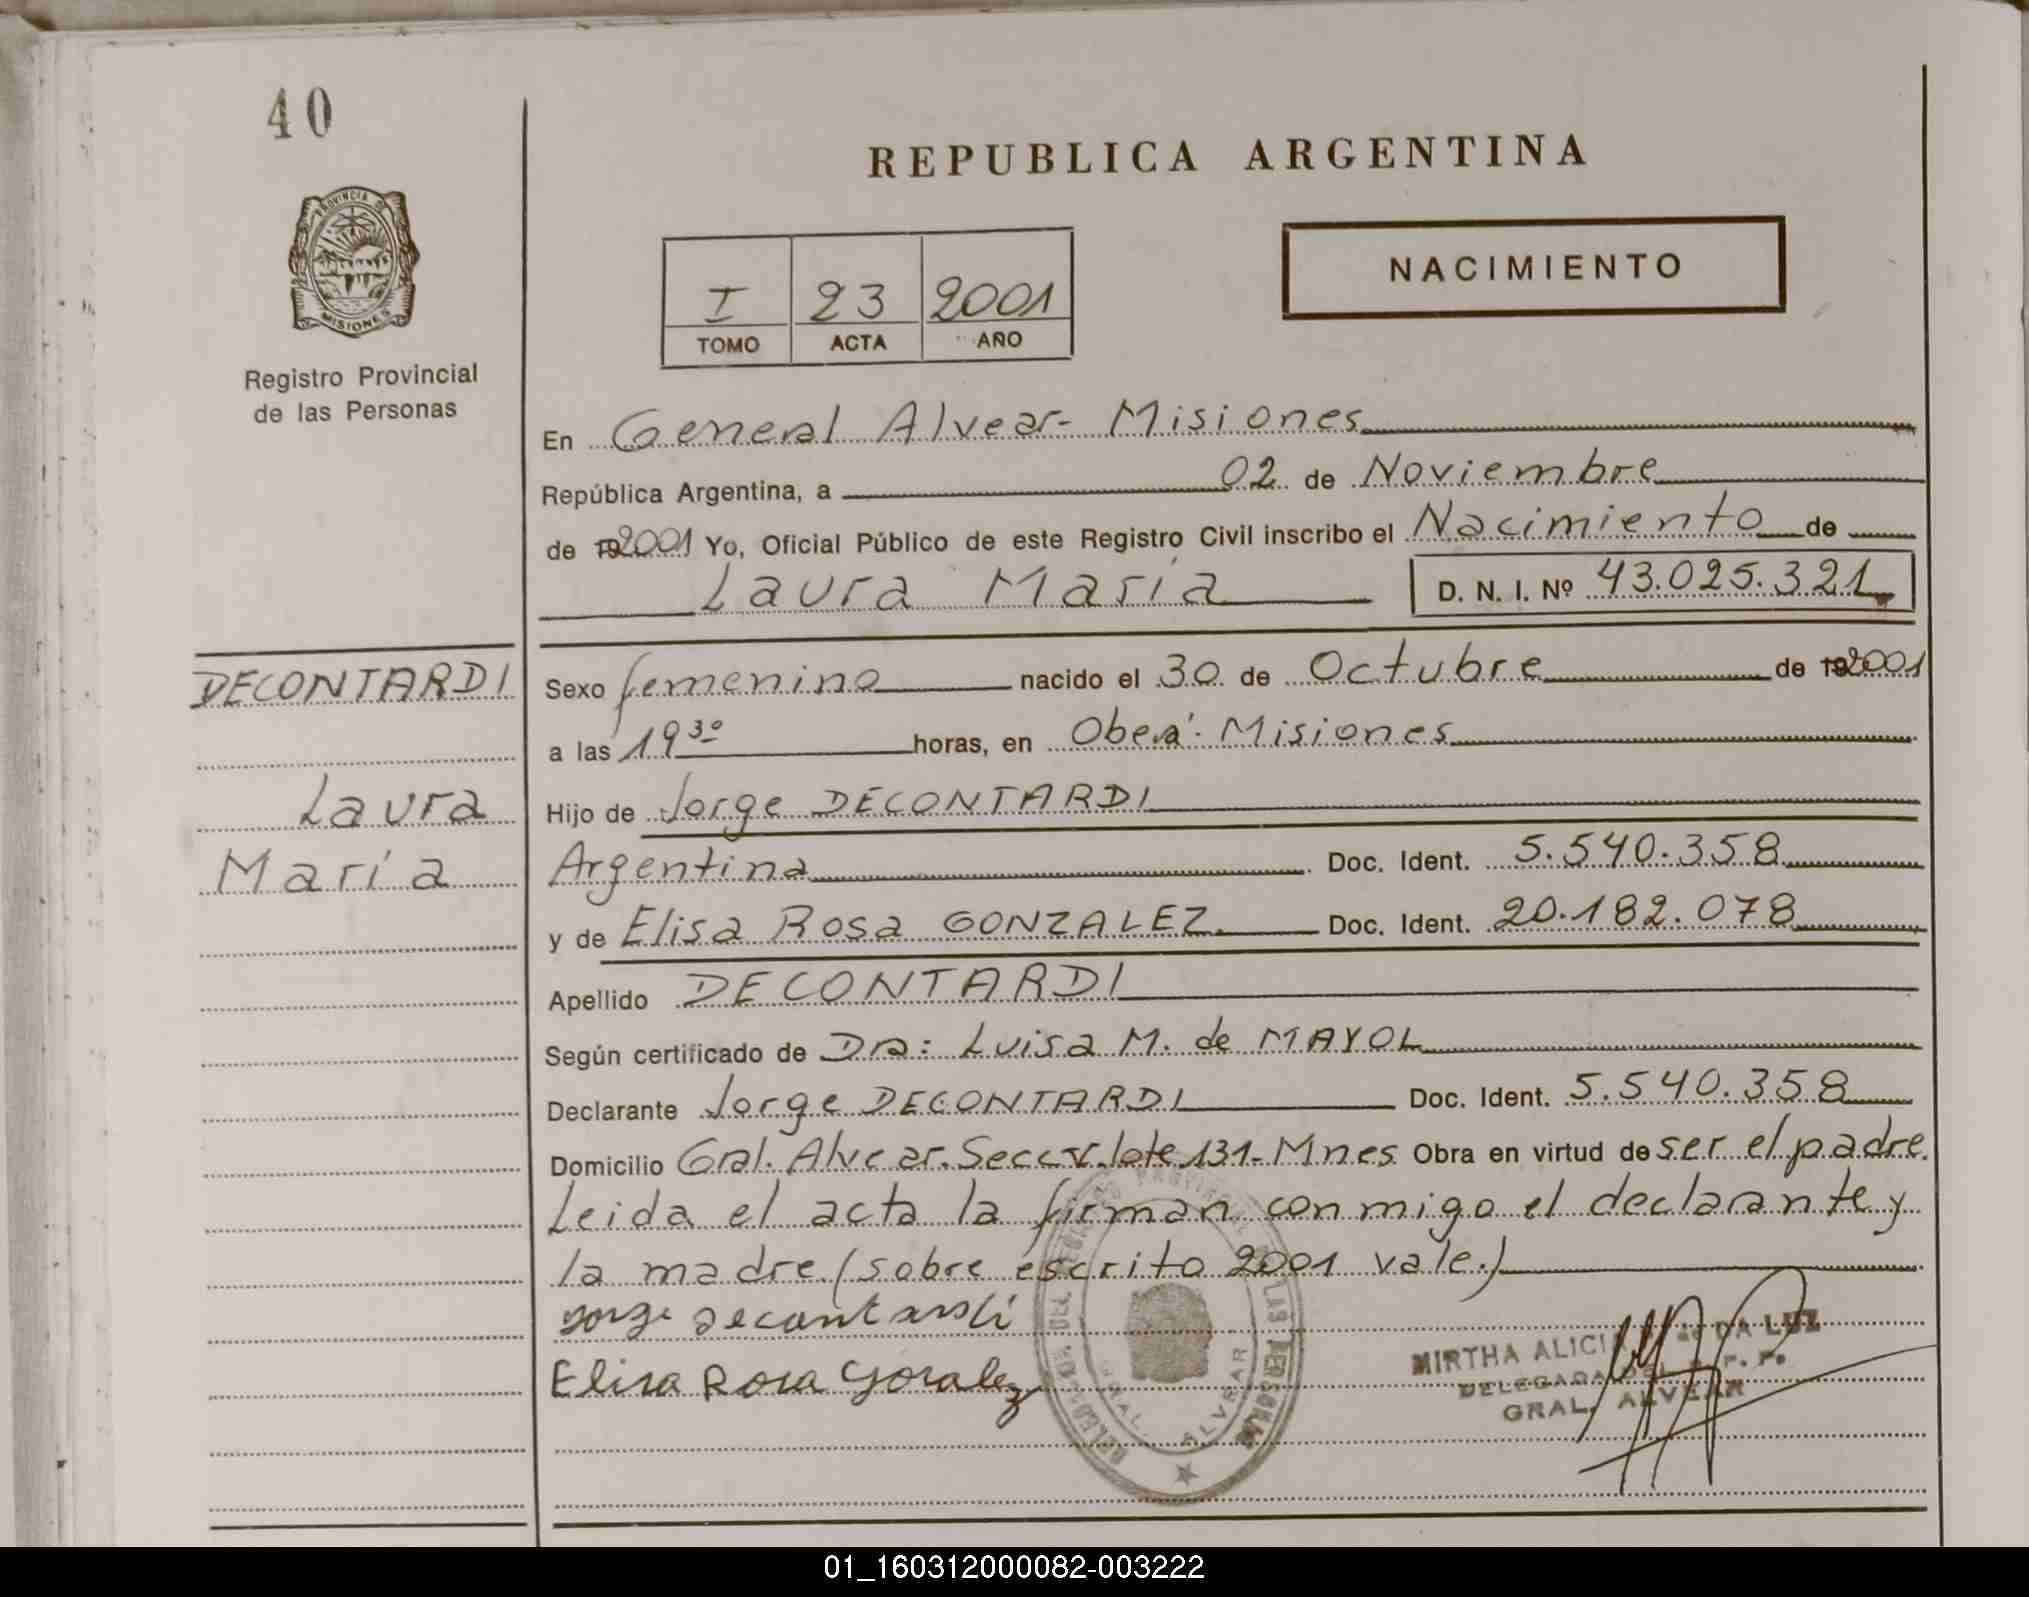 40
REPUBLICA ARGENTINA
PROVINCIA DE
MISIONES
Registro Provincial
de las Personas
I 23 2001
TOMO ACTA AÑO
NACIMIENTO
En General Alvear- Misiones
República Argentina, a 02 de Noviembre
de 192001 Yo, Oficial Público de este Registro Civil inscribo el Nacimiento de
Laura María D. N. I. Nº 43.025.321
DECONTARDI
Laura
María
Sexo femenino nacido el 30 de Octubre de 192001
a las 19 30 horas, en Oberá- Misiones
Hijo de Jorge DECONTARDI
Argentina Doc. Ident. 5.540.358
y de Elisa Rosa GONZALEZ Doc. Ident. 20.182.078
Apellido DECONTARDI
Según certificado de Dra: Luisa M. de MAYOL
Declarante Jorge DECONTARDI Doc. Ident. 5.540.358
Domicilio Gral. Alvear. Secc V. lote 131- Mnes Obra en virtud de ser el padre.
Leida el acta la firman conmigo el declarante y
la madre (sobre escrito 2001 vale.)
Jorge decontardi
Elisa Rosa Gonzalez
DEL REGISTRO PROVINCIAL DE LAS PERSONAS
GRAL. ALVEAR
MIRTHA ALICIA de DA LUZ
DELEGADA DEL R. P. P.
GRAL. ALVEAR
01_160312000082-003222